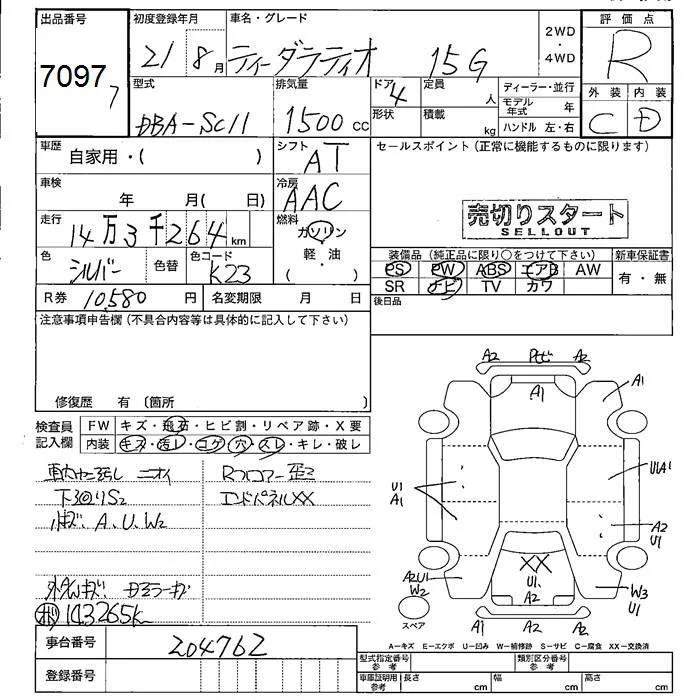 出品番号 初度登録年月 車名・グレード 2WD・4WD 評価点
7097 7 21 8月 ティーダラティオ 15G R
型式 排気量 ドア 4 定員 人 ディーラー・並行 外装 内装
DBA-SC11 1500cc 形状 積載 kg モデル年式 年 C D
ハンドル 左・右
車歴 自家用・( ) シフト AT セールスポイント(正常に機能するものに限ります)
車検 年 月( 日) 冷房 AAC
売切りスタート
SELLOUT
走行 14万3千264km 燃料 ガソリン
軽・油
( )
色 シルバー 色替 色コード K23
装備品(純正品に限り○をつけて下さい) 新車保証書
PS PW ABS エアB AW 有・無
SR ナビ TV カワ
R券 10,580円 名変期限 月 日 後日品
注意事項申告欄(不具合内容等は具体的に記入して下さい)
修復歴 有 〔箇所 〕
検査員記入欄 FW キズ・飛石・ヒビ割・リペア跡・X要
内装 キズ・汚レ・コゲ・穴・スレ・キレ・破レ
ニオイ Rフロアー歪ミ
下回りS2 エンドパネルXX
A、U、W2
143265k
車台番号 204762
登録番号
A2 A2
A1 A1
U1 A1 U1A1
A2 U1
XX
U1
A2
A2U1 W2 W3 U1
スペア A1 A2 A2
A-キズ E-エクボ U-凹み W-補修跡 S-サビ C-腐食 XX-交換済
型式指定番号 参考 類別区分番号 参考
車庫証明用 参考 長さ cm 幅 cm 高さ cm